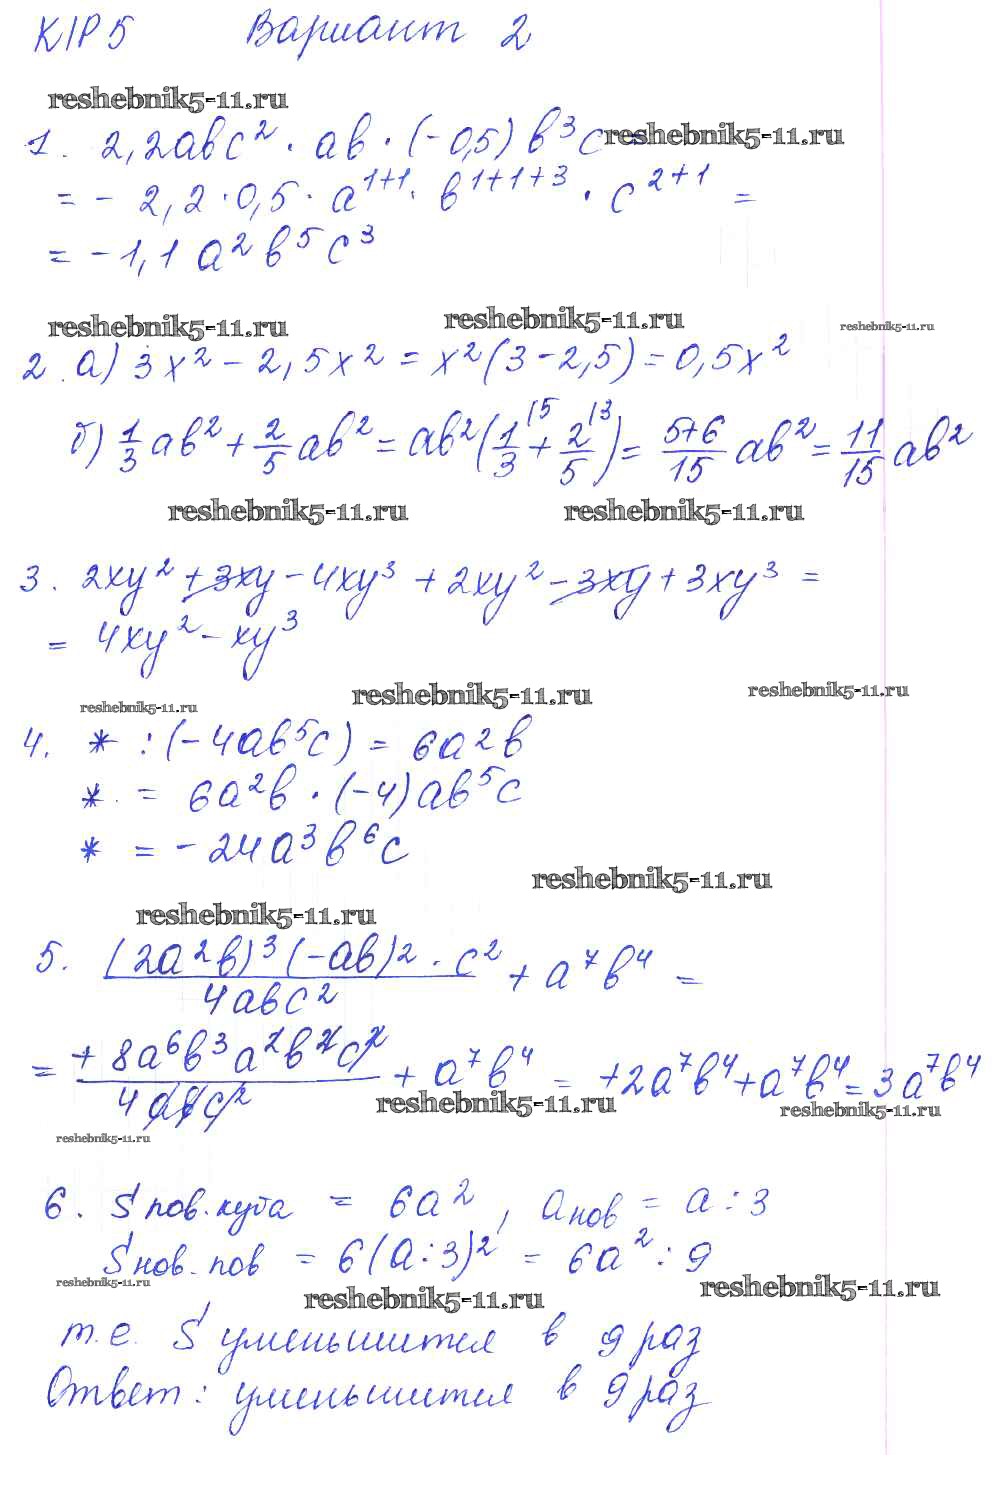 К/Р 5 Вариант 2
reshebnik5-11.ru
1. 2,2abc² · ab · (-0,5) b³c reshebnik5-11.ru
= - 2,2 · 0,5 · a¹⁺¹ · b¹⁺¹⁺³ · c²⁺¹ =
= -1,1 a² b⁵ c³
reshebnik5-11.ru reshebnik5-11.ru reshebnik5-11.ru
2. а) 3x² - 2,5x² = x²(3 - 2,5) = 0,5x²
б) 1/3 ab² + 2/5 ab² = ab²(1/3 |5 + 2/5 |3) = (5+6)/15 ab² = 11/15 ab²
reshebnik5-11.ru reshebnik5-11.ru
3. 2xy² + 3xy - 4xy³ + 2xy² - 3xy + 3xy³ =
= 4xy² - xy³
reshebnik5-11.ru reshebnik5-11.ru reshebnik5-11.ru
4. * : (-4ab⁵c) = 6a²b
* = 6a²b · (-4)ab⁵c
* = -24a³b⁶c
reshebnik5-11.ru
reshebnik5-11.ru
5. (2a²b)³(-ab)² · c² / 4abc² + a⁷b⁴ =
= +8a⁶b³a²b²c² / 4abc² + a⁷b⁴ = +2a⁷b⁴ + a⁷b⁴ = 3a⁷b⁴
reshebnik5-11.ru reshebnik5-11.ru
reshebnik5-11.ru
6. S пов. куба = 6a², a нов = a : 3
S нов. пов = 6(a:3)² = 6a² : 9
reshebnik5-11.ru reshebnik5-11.ru reshebnik5-11.ru
т.е. S уменьшится в 9 раз
Ответ: уменьшится в 9 раз